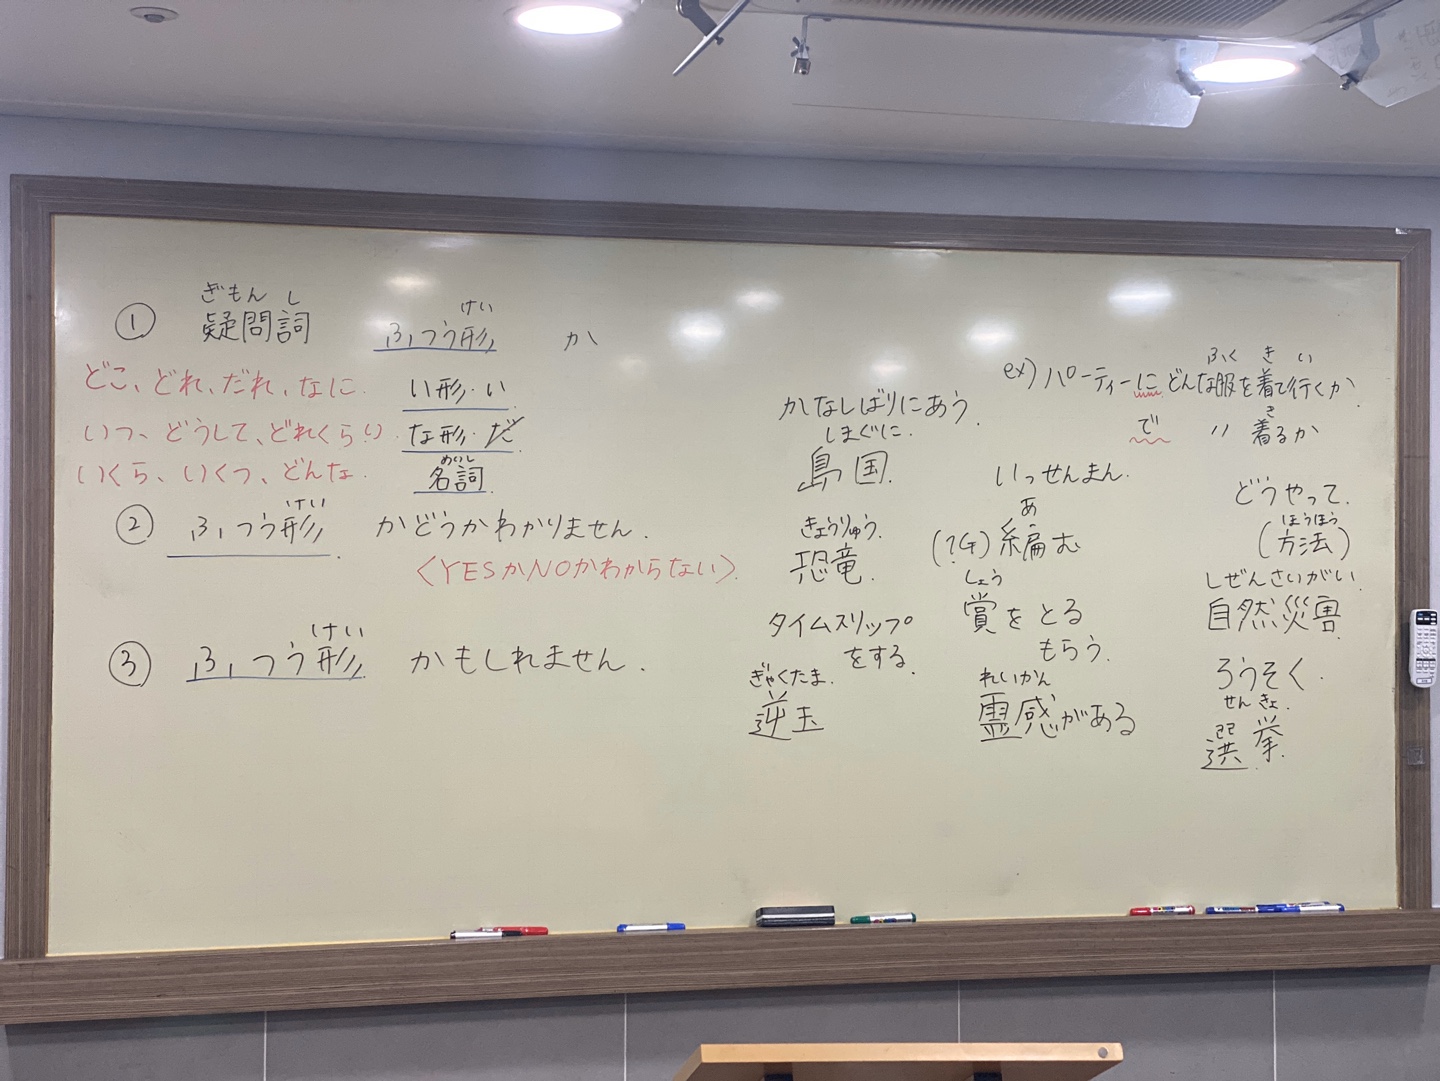 ぎもん し
① 疑問詞 ふつう形 か
けい
どこ、どれ、だれ、なに.
い形・い
いつ、どうして、どれくらい.
な形・だ
いくら、いくつ、どんな.
めいし
名詞.
けい
② ふつう形. かどうかわかりません.
〈YESかNOかわからない〉.
けい
③ ふつう形 かもしれません.
かなしばりにあう.
しまぐに.
島国.
きょうりゅう.
恐竜.
タイムスリップ
をする.
ぎゃくたま.
逆玉
いっせんまん.
あ
編む
しょう
賞をとる
もらう.
れいかん
霊感がある
ふく き い
ex) パーティーにどんな服を着て行くか.
き
で 〃 着るか
どうやって.
ほうほう
(方法)
しぜんさいがい.
自然災害.
ろうそく.
せんきょ.
選挙.